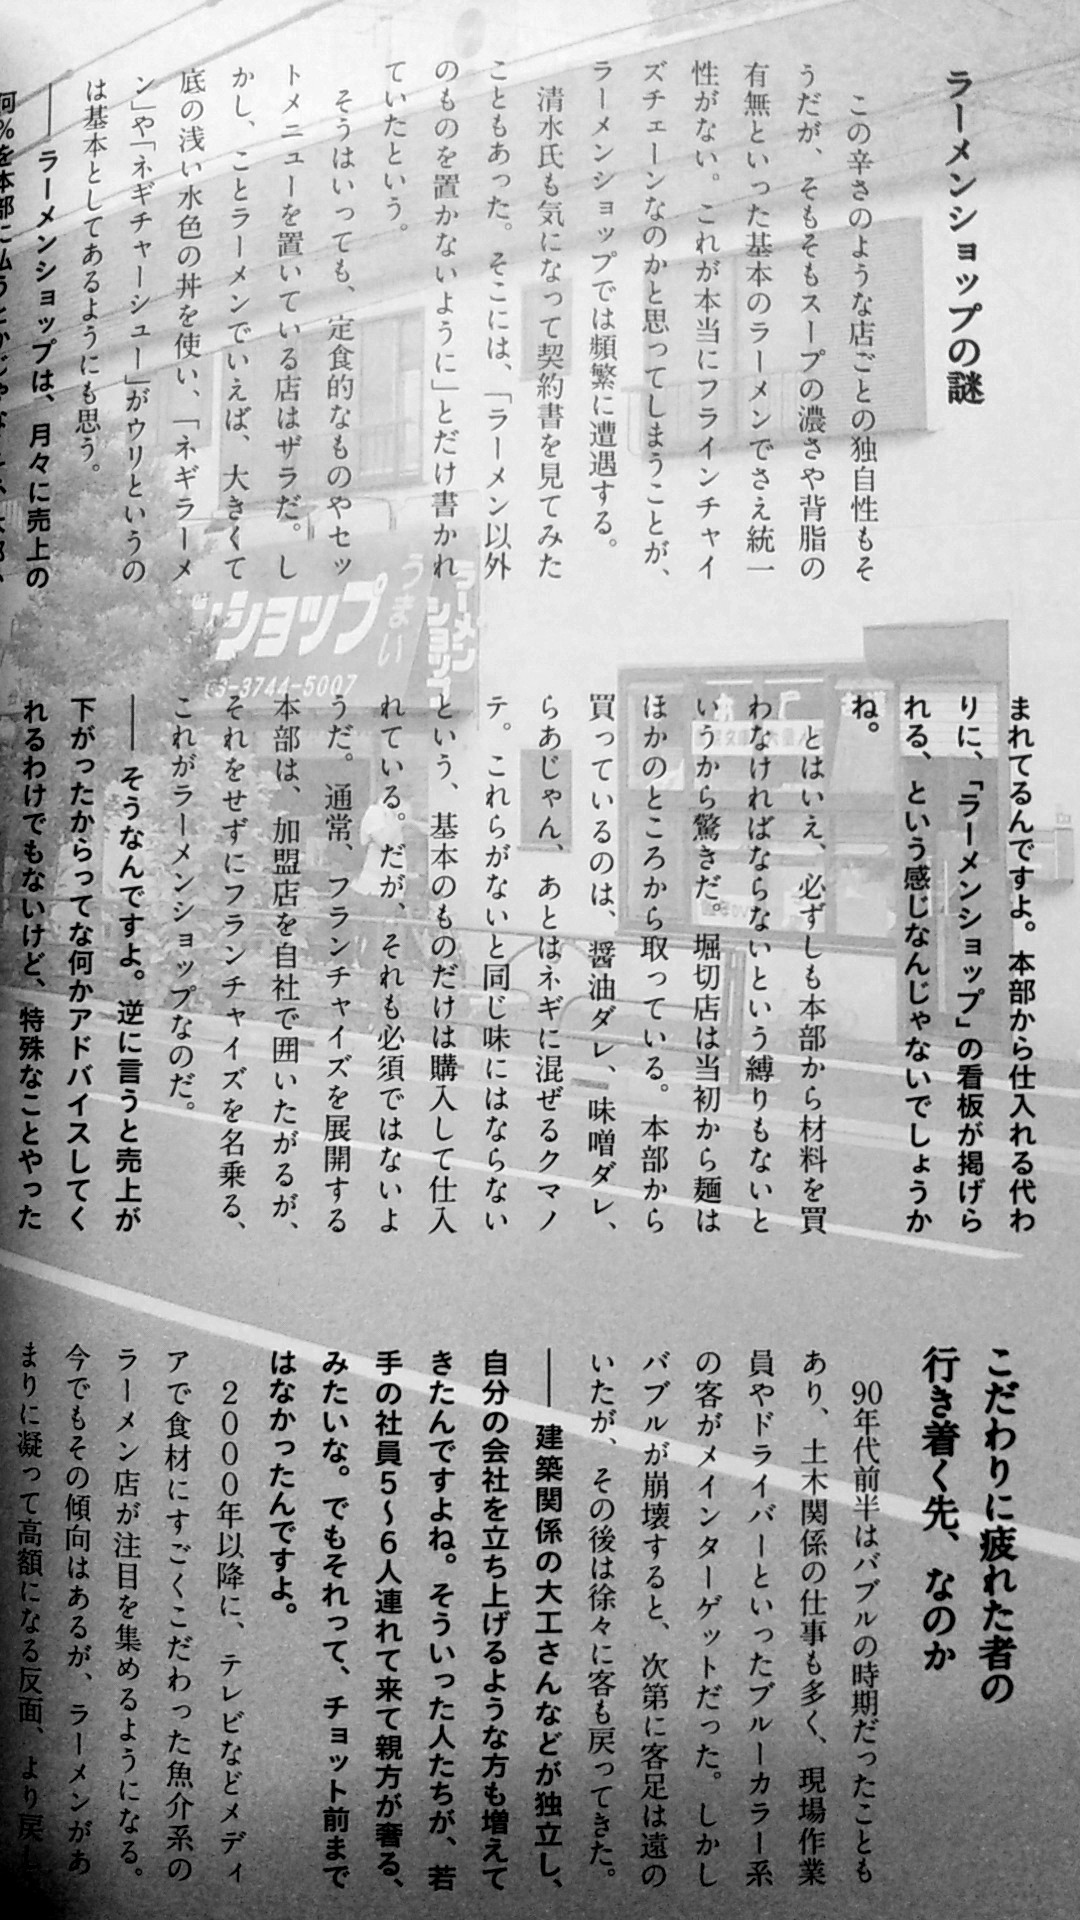 ラーメンショップの謎
この辛さのような店ごとの独自性もそ
うだが、そもそもスープの濃さや背脂の
有無といった基本のラーメンでさえ統一
性がない。これが本当にフラインチャイ
ズチェーンなのかと思ってしまうことが、
ラーメンショップでは頻繁に遭遇する。
清水氏も気になって契約書を見てみた
こともあった。そこには、「ラーメン以外
のものを置かないように」とだけ書かれ
ていたという。
そうはいっても、定食的なものやセッ
トメニューを置いている店はザラだ。し
かし、ことラーメンでいえば、大きくて
底の浅い水色の丼を使い、「ネギラーメ
ン」や「ネギチャーシュー」がウリというの
は基本としてあるようにも思う。
── ラーメンショップは、月々に売上の
何%を本部に払うとかじゃな
まれてるんですよ。本部から仕入れる代わ
りに、「ラーメンショップ」の看板が掲げら
れる、という感じなんじゃないでしょうか
ね。
とはいえ、必ずしも本部から材料を買
わなければならないという縛りもないと
いうから驚きだ。堀切店は当初から麺は
ほかのところから取っている。本部から
買っているのは、醤油ダレ、味噌ダレ、
らあじゃん、あとはネギに混ぜるクマノ
テ。これらがないと同じ味にはならない
という、基本のものだけは購入して仕入
れている。だが、それも必須ではないよ
うだ。通常、フランチャイズを展開する
本部は、加盟店を自社で囲いたがるが、
それをせずにフランチャイズを名乗る、
これがラーメンショップなのだ。
── そうなんですよ。逆に言うと売上が
下がったからってな何かアドバイスしてく
れるわけでもないけど、特殊なことやった
こだわりに疲れた者の
行き着く先、なのか
90年代前半はバブルの時期だったことも
あり、土木関係の仕事も多く、現場作業
員やドライバーといったブルーカラー系
の客がメインターゲットだった。しかし
バブルが崩壊すると、次第に客足は遠の
いたが、その後は徐々に客も戻ってきた。
── 建築関係の大工さんなどが独立し、
自分の会社を立ち上げるような方も増えて
きたんですよね。そういった人たちが、若
手の社員5〜6人連れて来て親方が奢る、
みたいな。でもそれって、チョット前まで
はなかったんですよ。
2000年以降に、テレビなどメディ
アで食材にすごくこだわった魚介系の
ラーメン店が注目を集めるようになる。
今でもその傾向はあるが、ラーメンがあ
まりに凝って高額になる反面、より戻し
ショップ
うまい
ラーメン
ショップ
3-3744-5007